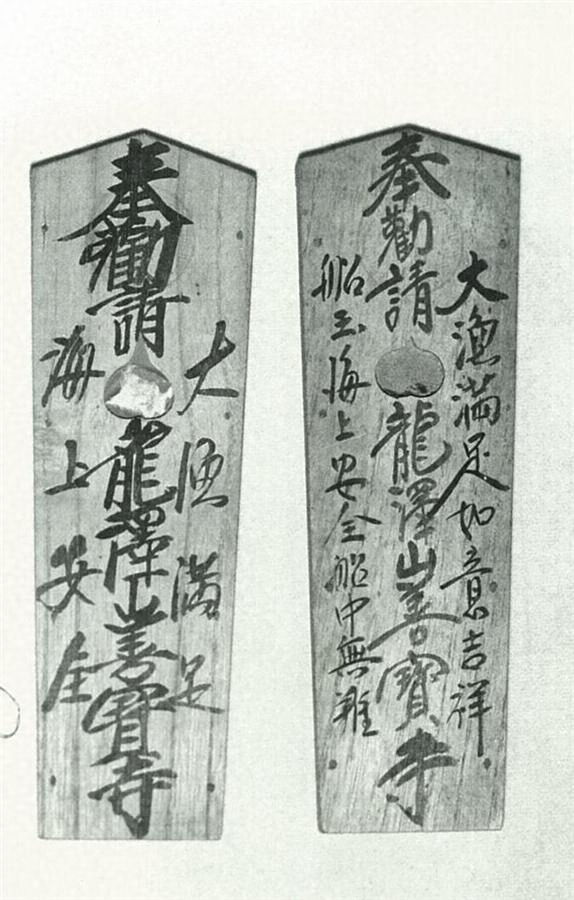 大漁満足如意吉祥
奉勸請龍澤山善寶寺
船玉海上安全船中無難
大漁満足
奉勸請龍澤山善寶寺
海上安全